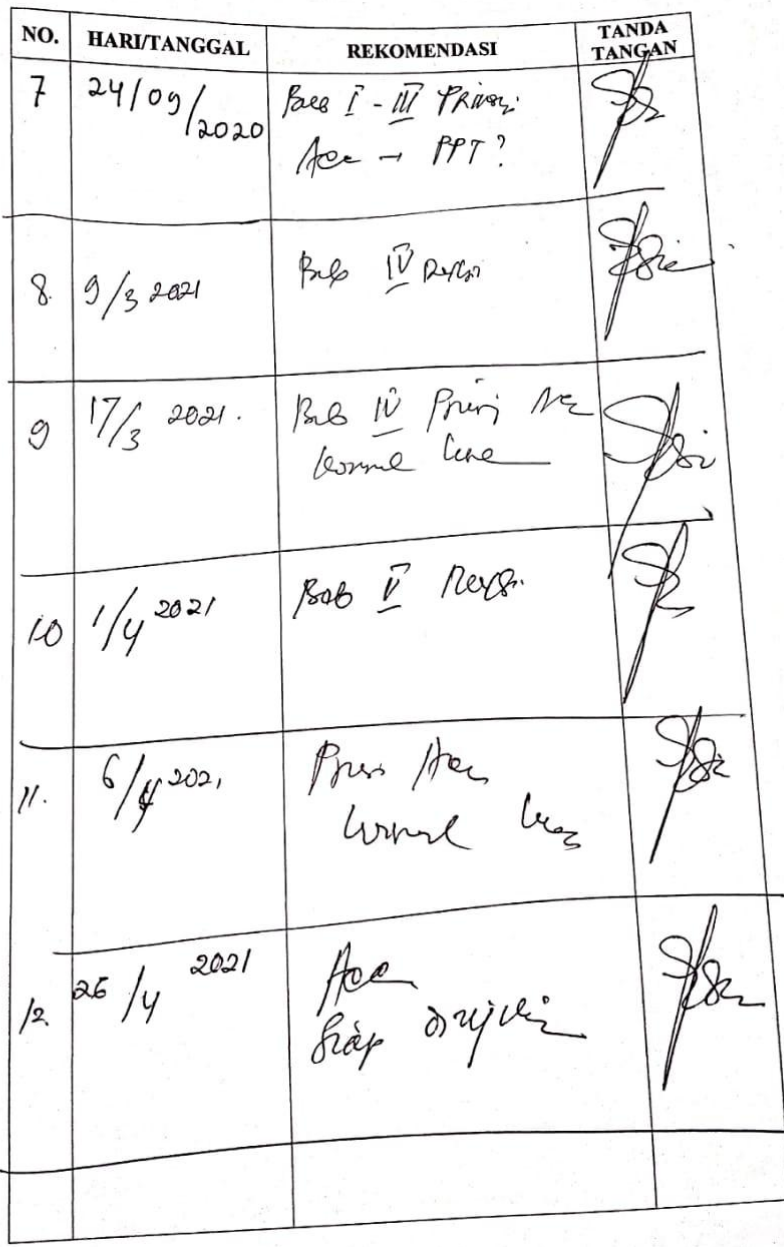 NO. HARI/TANGGAL REKOMENDASI TANDA TANGAN
7 24/09/2020 Bab I - III Prinsip
Acc → PPT?
8. 9/3 2021 Bab IV Revisi
9 17/3 2021. Bab IV Prinsip Acc
10 1/4 2021 Bab V Revisi
11. 6/4 2021 Prinsip Acc
12. 26/4 2021 Acc
Siap diujikan